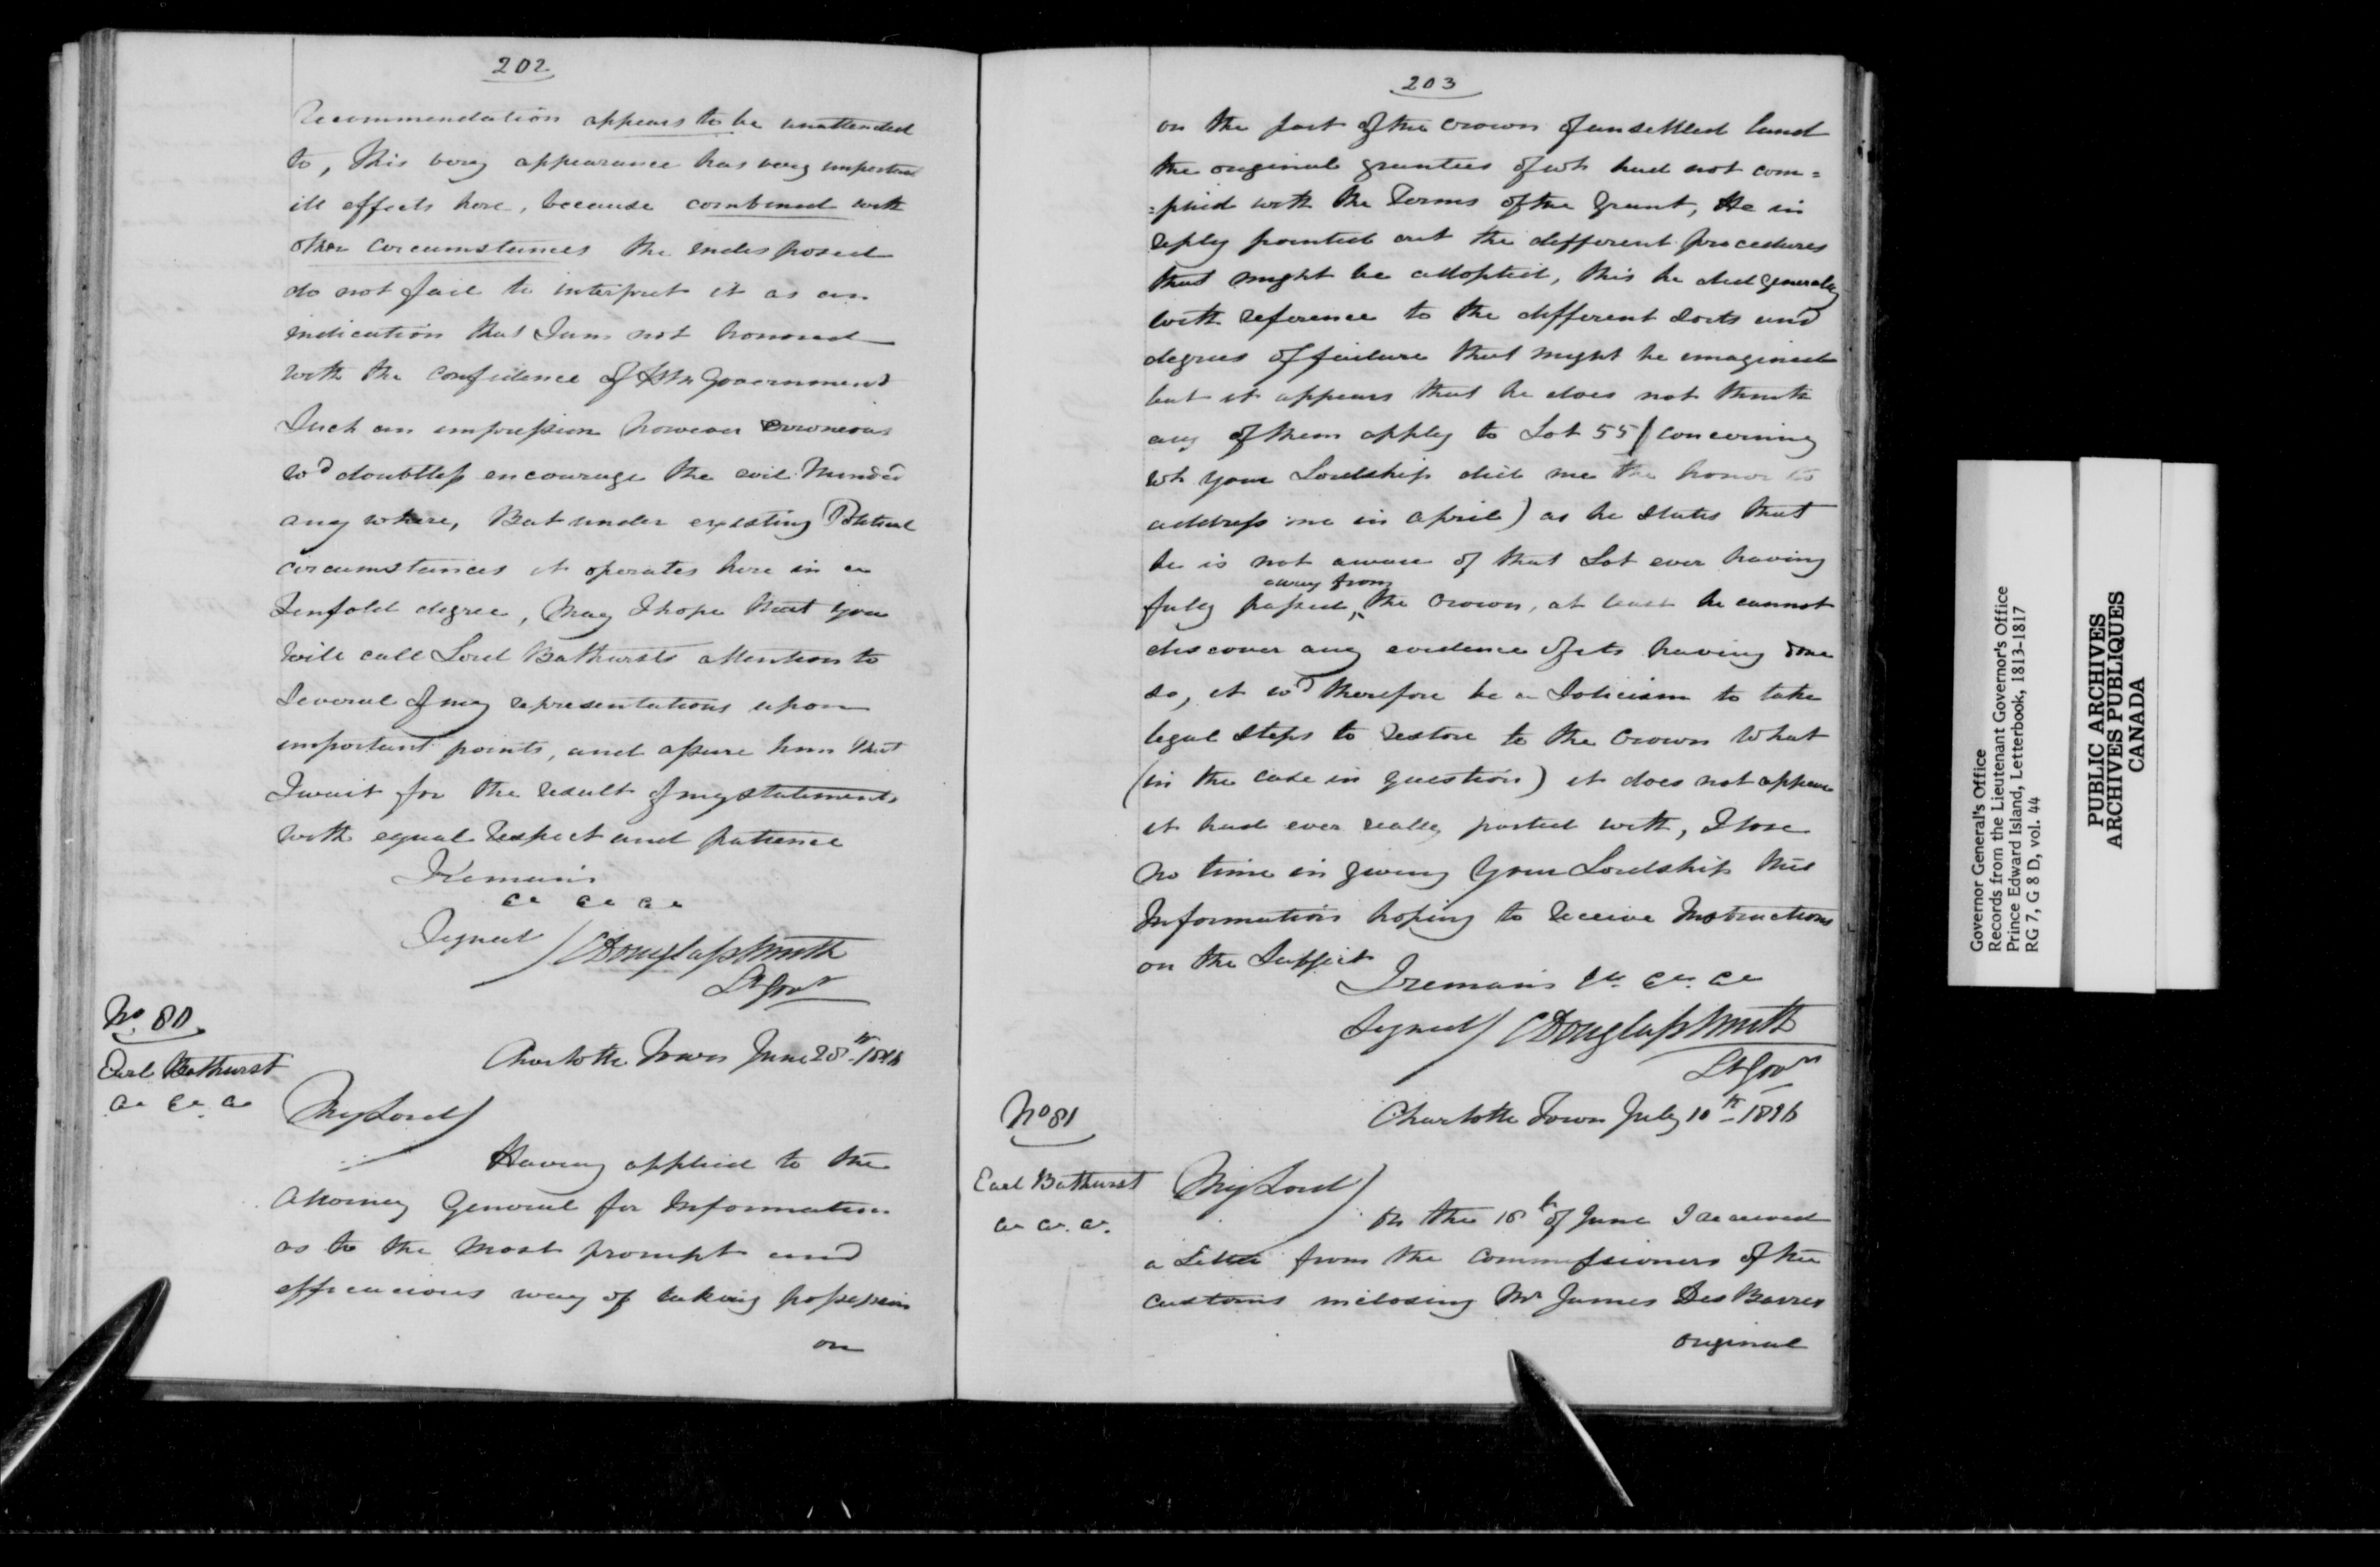 202
Recommendation appears to be unattended
to, this very appearance has very important
ill effects here, because combined with
other circumstances the indisposed
do not fail to interpret it as an
indication that I am not honored
with the confidence of Government
Such an impression however erroneous
wd doubtless encourage the evil minded
any where, But under existing Political
circumstances it operates here in a
Tenfold degree, May I hope that you
will call Lord Bathursts attention to
several of my representations upon
important points, and assure him that
I wait for the result of my statements
with equal respect and patience
I remain
&c &c &c
Signed / C Douglass Smith
Lt Govr
No. 80
Earl Bathurst
&c &c &c
Charlotte Town June 28th 1816
My Lord /
Having applied to the
Attorney General for Information
as to the most prompt and
efficacious way of taking possession
on
203
on the part of the Crown of unsettled land
the original grantees of wh had not com=
=plied with the Terms of the Grant, He in
reply pointed out the different procedures
that might be adopted, this he did generally
with reference to the different sorts and
degrees of failure that might be imagined
but it appears that he does not think
any of them apply to Lot 55 (concerning
wh your Lordship did me the honor to
address me in April) as he states that
he is not aware of that Lot ever having
fully passed away from the Crown, at least he cannot
discover any evidence of its having done
so, it wd therefore be a Solicism to take
legal steps to restore to the Crown what
(in the case in question) it does not appear
it had ever really parted with, I lose
no time in giving your Lordship this
Information hoping to receive Instructions
on the Subject
I remain &c. &c. &c
Signed / C Douglass Smith
Lt Govr
No 81
Charlotte Town July 10th 1816
Earl Bathurst
&c &c. &c.
My Lord /
On the 18th of June I received
a Letter from the Commissioners of the
Customs inclosing Mr James Des Barres
original
Governor General's Office
Records from the Lieutenant Governor's Office
Prince Edward Island, Letterbook, 1813-1817
RG 7, G 8 D, vol. 44
PUBLIC ARCHIVES
ARCHIVES PUBLIQUES
CANADA